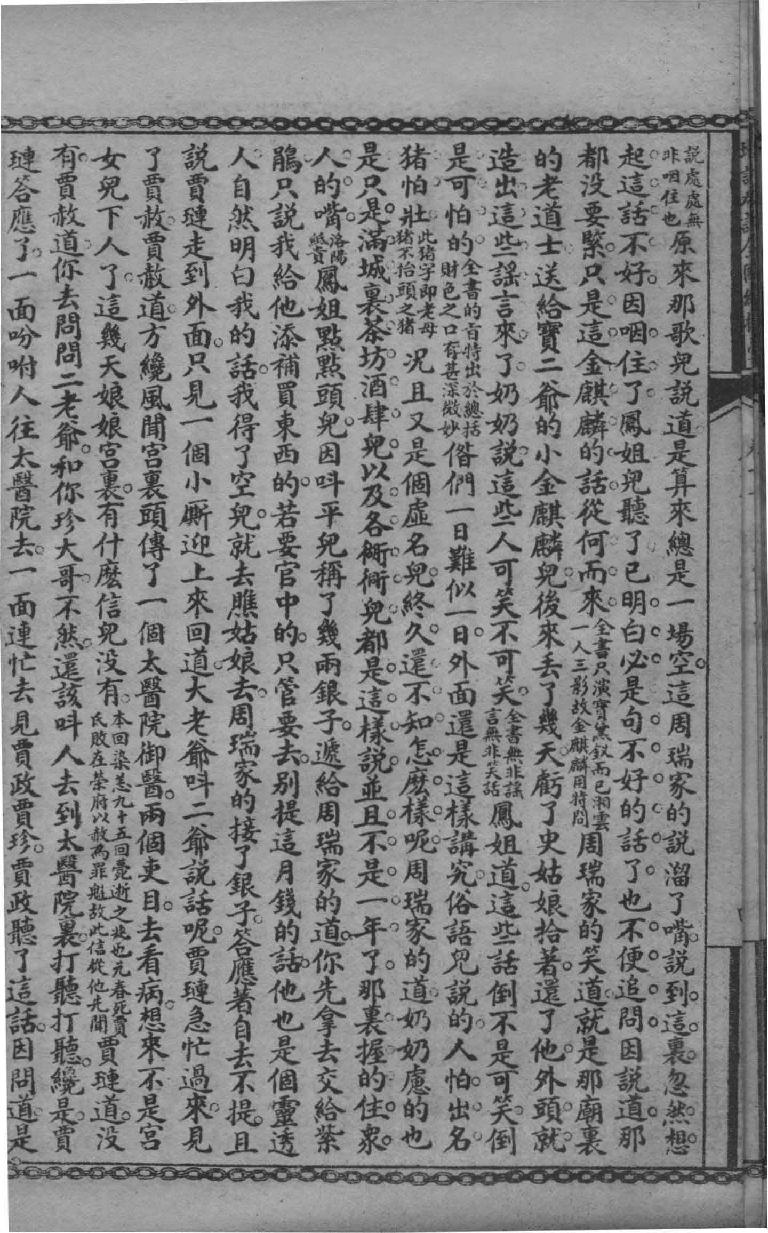 説處處無非咽住也原來那歌兒説道是算來總是一場空這周瑞家的説溜了嘴説到這裏忽然想
起這話不好因咽住了鳳姐兒聽了已明白必是句不好的話了也不便追問因説道那
都没要緊只是這金麒麟的話從何而來全書只演寶黛釵而已湘雲一人三影故金麒麟用特問周瑞家的笑道就是那廟裏
的老道士送給寶二爺的小金麒麟兒後來丢了幾天虧了史姑娘拾着還了他外頭就
造出這些謡言來了奶奶説這些人可笑不可笑全書無非謡言無非笑話鳳姐道這些話倒不是可笑倒
是可怕的全書的旨特出於總括財色之口有甚深微妙偺們一日難似一日外面還是這樣講究俗語兒説的人怕出名
猪怕壯此猪字即老母猪不抬頭之猪况且又是個虚名兒終久還不知怎麽樣呢周瑞家的道奶奶慮的也
是只是滿城裏茶坊酒肆兒以及各衚衕兒都是這樣説並且不是一年了那裏握的住衆
人的嘴洛陽紙貴鳳姐點點頭兒因呌平兒稱了幾兩銀子遞給周瑞家的道你先拿去交給紫
鵑只説我給他添補買東西的若要官中的只管要去别提這月錢的話他也是個靈透
人自然明白我的話我得了空兒就去瞧姑娘去周瑞家的接了銀子答應着自去不提且
説賈璉走到外面只見一個小厮迎上來回道大老爺呌二爺説話呢賈璉急忙過來見
了賈赦賈赦道方纔風聞宫裏頭傳了一個太醫院御醫兩個吏目去看病想來不是宫
女兒下人了這幾天娘娘宫裏有什麽信兒没有本回染恙九十五回薨逝之兆也元春死賈氏敗在榮府以赦爲罪魁故此信從他先聞賈璉道没
有賈赦道你去問問二老爺和你珍大哥不然還該呌人去到太醫院裏打聽打聽纔是賈
璉答應了一面吩咐人往太醫院去一面連忙去見賈政賈珍賈政聽了這話因問道是